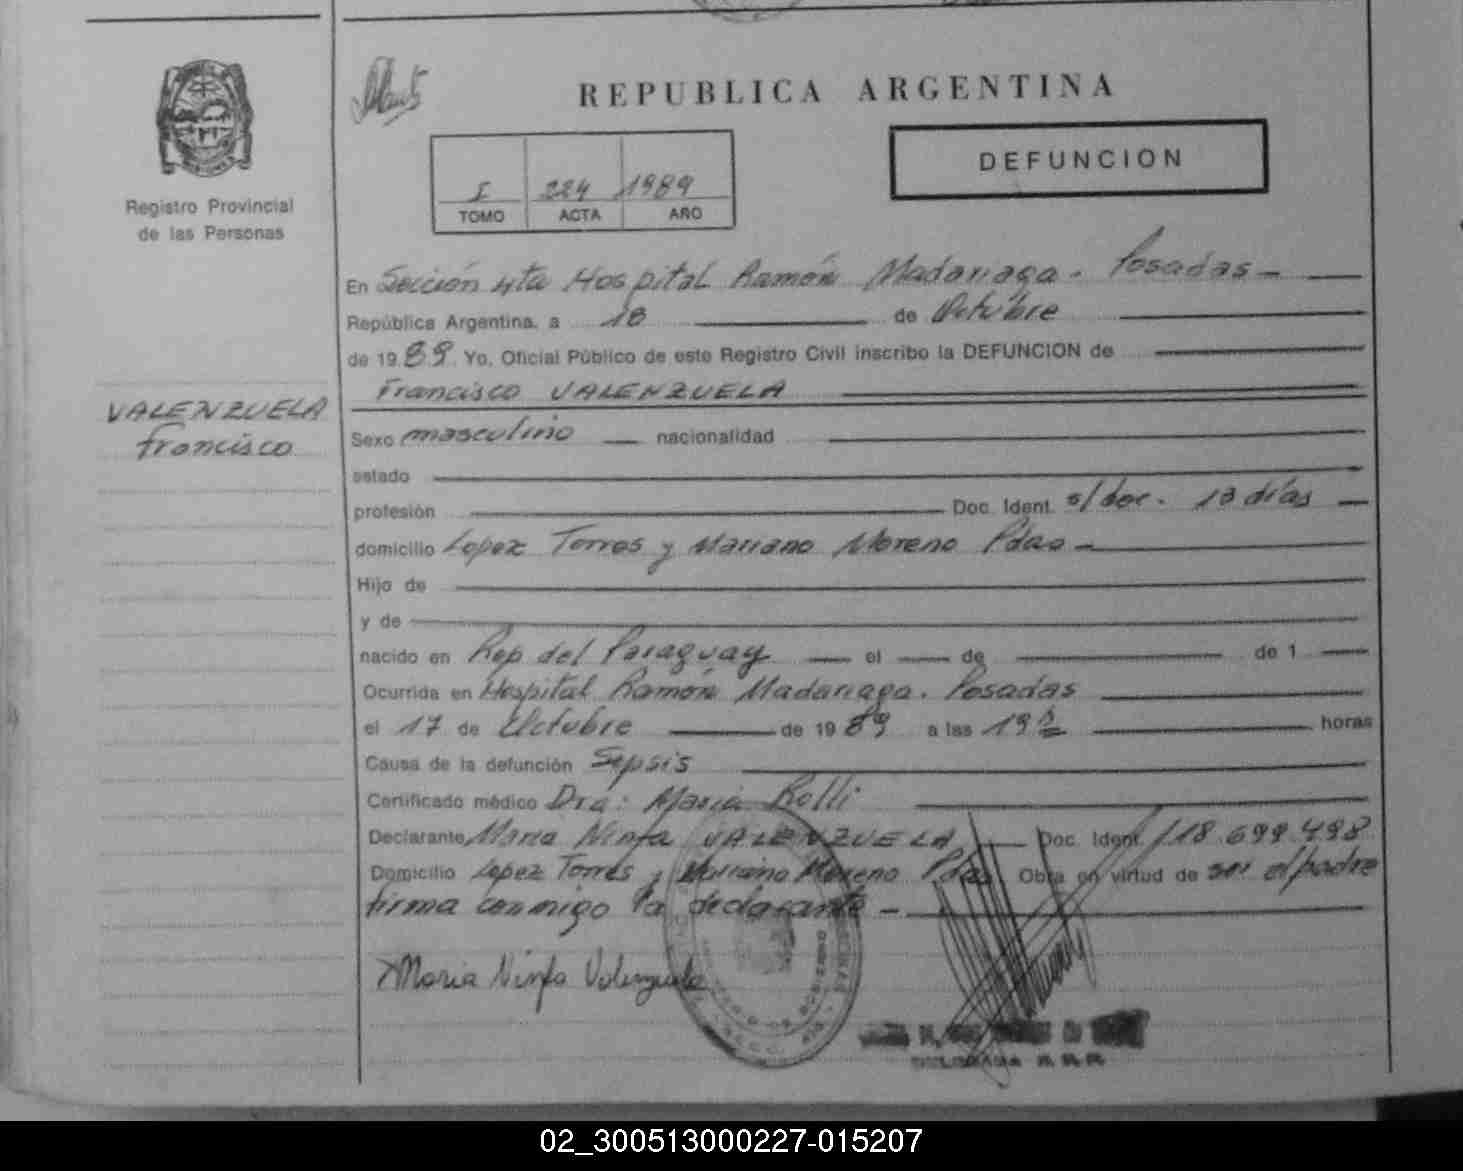 REPUBLICA ARGENTINA
I 224 1989
TOMO ACTA AÑO
DEFUNCION
Registro Provincial
de las Personas
VALENZUELA
Francisco
En Sección 4ta Hospital Ramón Madariaga - Posadas -
República Argentina, a 18 de Octubre
de 1989. Yo, Oficial Público de este Registro Civil inscribo la DEFUNCION de
Francisco VALENZUELA
Sexo masculino nacionalidad
estado
profesión Doc. Ident. s/doc. 13 días
domicilio Lopez Torres y Mariano Moreno Pdas -
Hijo de
y de
nacido en Rep del Paraguay el de de 1
Ocurrida en Hospital Ramón Madariaga. Posadas
el 17 de Octubre de 1989 a las 19 horas
Causa de la defunción Sepsis
Certificado médico Dra: Maria Rolli
Declarante Maria Ninfa VALENZUELA Doc. Ident. 118.699.498
Domicilio Lopez Torres y Mariano Moreno Pdas Obra en virtud de ser el padre
firma conmigo la declarante -
Maria Ninfa Valenzuela
02_300513000227-015207